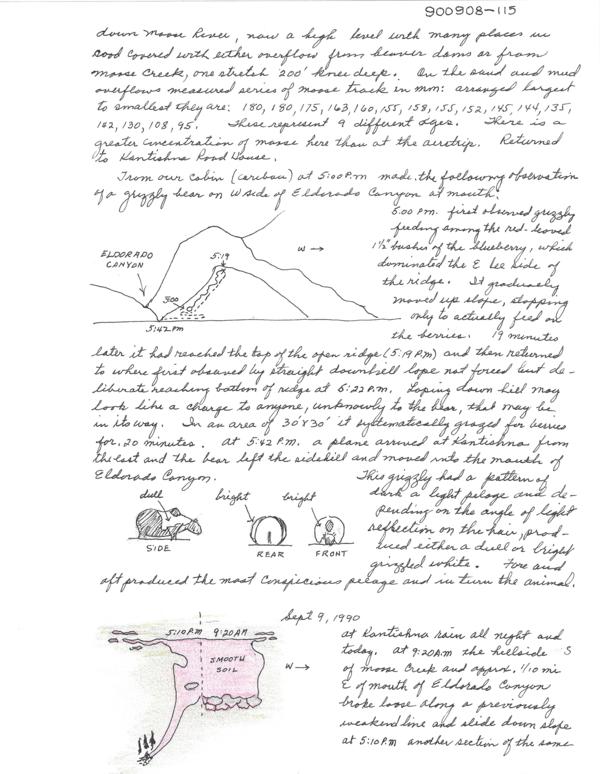 900908-115
down Moose River, now a high level with many places in
road covered with either overflow from beaver dams or from
Moose Creek, one stretch 200' knee deep. On the sand and mud
overflows measured series of moose track in mm: arranged largest
to smallest they are: 180, 180, 175, 163, 160, 155, 158, 155, 152, 145, 144, 135,
132, 130, 108, 95. These represent 9 different ages. There is a
greater concentration of moose here than at the airstrip. Returned
to Kantishna Road House.
From our cabin (caribou) at 5:00 P.m made the following observation
of a grizzly bear on W side of Eldorado Canyon at mouth.
5:00 P.M. first observed grizzly
feeding among the red-leaved
1½" bushes of the blueberry, which
dominated the E lee side of
the ridge. It gradually
moved up slope, stopping
only to actually feed on
the berries. 19 minutes
ELDORADO
CANYON
5:19
W →
5:00
5:42 PM
later it had reached the top of the open ridge (5:19 P.M) and then returned
to where first observed by straight downhill lope not forced but de-
liberate reaching bottom of ridge at 5:22 P.M. Loping down hill may
look like a charge to anyone, unknowly to the bear, that may be
in its way. In an area of 30'x30' it systematically grazed for berries
for 20 minutes. At 5:42 P.M. a plane arrived at Kantishna from
the east and the bear left the sidehill and moved into the mouth of
Eldorado Canyon. This grizzly had a pattern of
dark & light pelage and de-
pending on the angle of light
reflection on the hair, prod-
uced either a dull or bright
grizzled white. Fore and
dull bright bright
SIDE REAR FRONT
aft produced the most conspicious pelage and in turn the animal.
Sept 9, 1990
5:10 P.M 9:20 AM
SMOOTH
SOIL
W →
at Kantishna rain all night and
today. At 9:20 A.M the hillside S
of Moose Creek and approx. 1/10 mi
E of mouth of Eldorado Canyon
broke loose along a previously
weakend line and slide down slope
at 5:10 P.M another section of the same